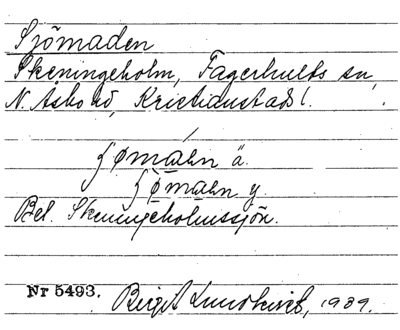 Sjömaden
Skeningeholm, Fagerhults sn,
N. Åsbo hd, Kristianstads l.
ʃømaʰn ä.
ʃømaʰn y.
Bel. Skeningeholmssjön.
Nr 5493. Birgit Lundkvist, 1939.